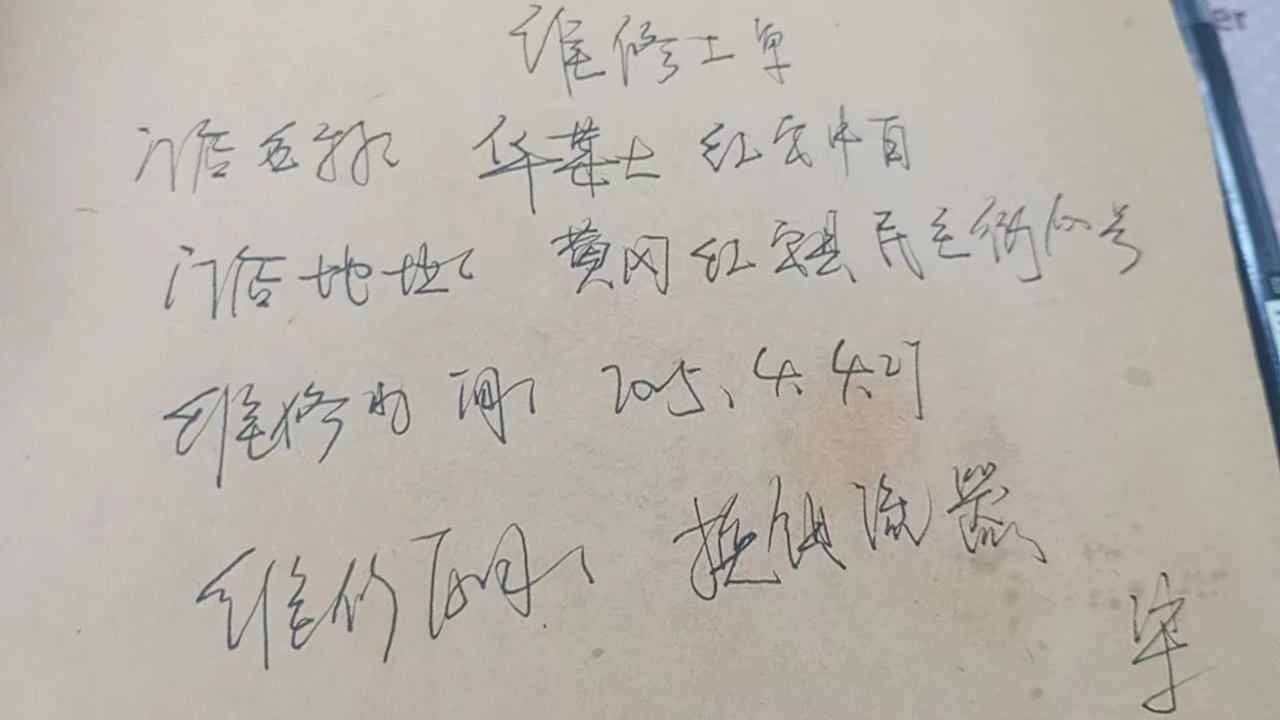 维修工单
门店名称: 华莱士 红安中百
门店地址: 黄冈红安县民主街 号
维修时间: 2025.4.27
维修项目: 换 流器